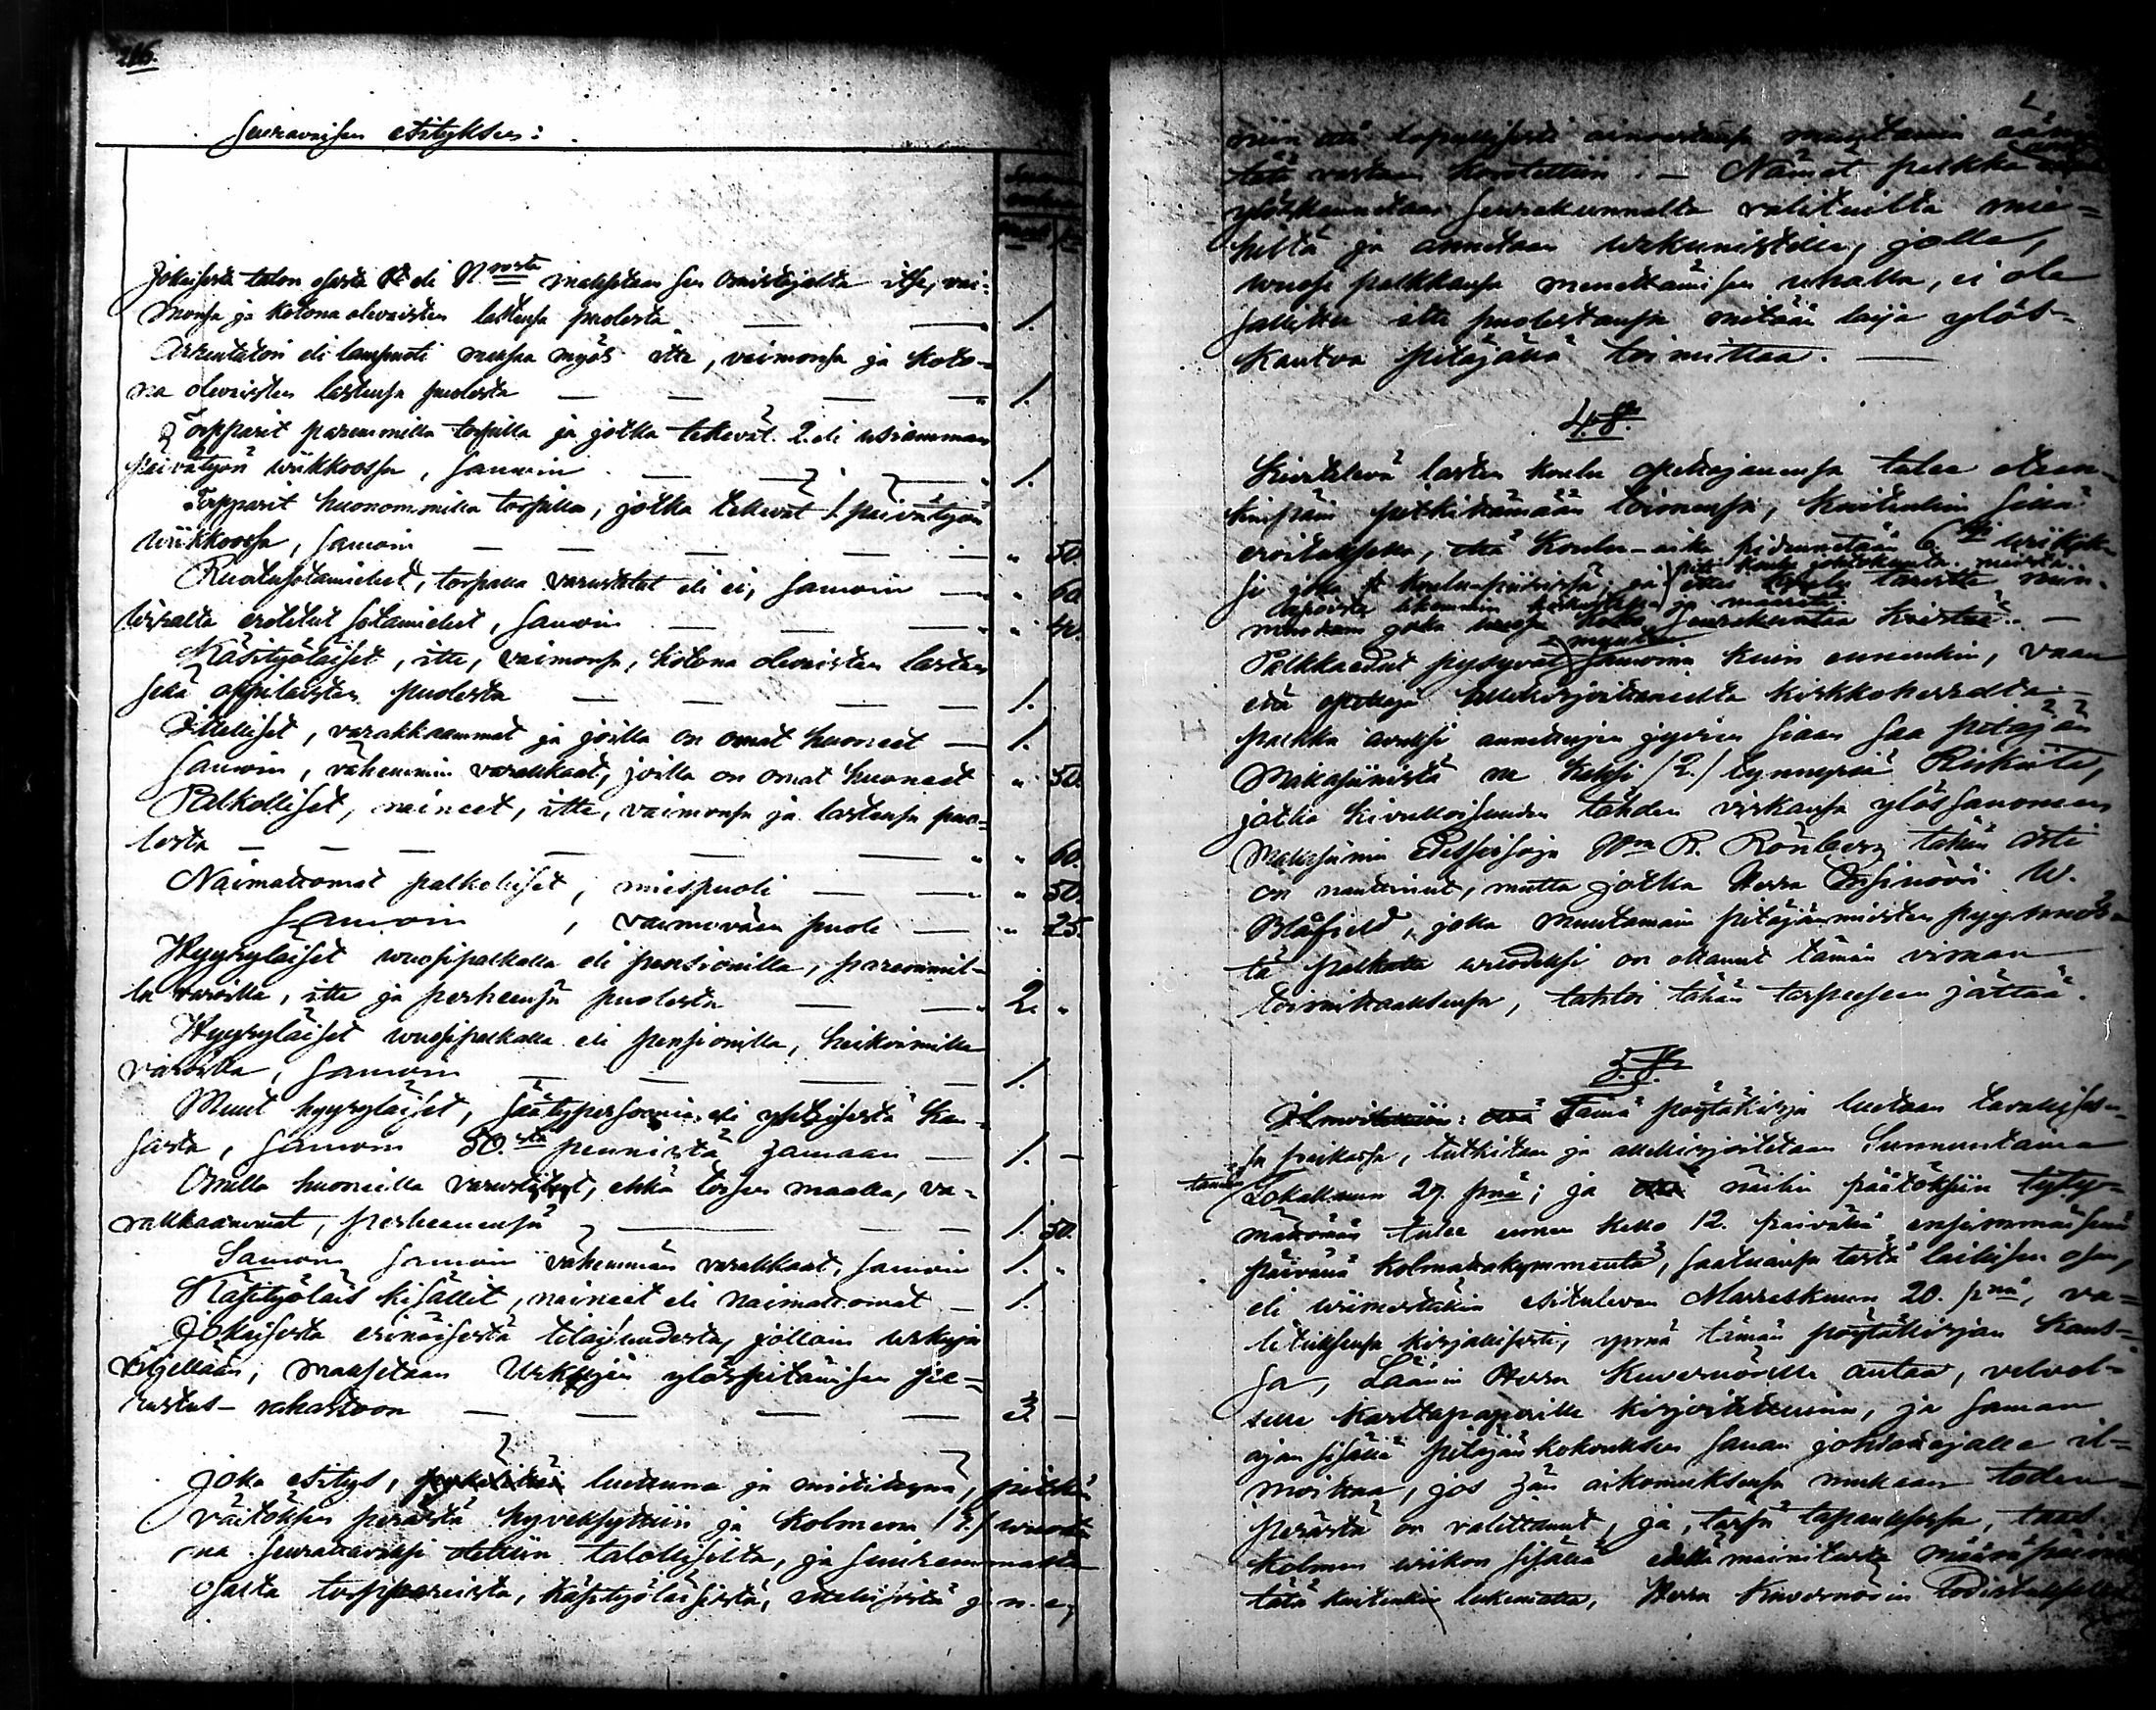 216.
seuraavaisen esityksen:
Suomen
Mark. p.
Jokaisesta talon osasta eli N:rosta maksetaan sen omistajalta itse, vai-
monsa ja kotona olevaisten lastensa puolesta — — „ 1.
Arentatori eli lampuoti maksaa myös itte, vaimonsa ja koto-
na olevaisten lastensa puolesta — — — — „ 1.
Torpparit paremmilla torpilla ja jotka tekevät 2. eli usiamman
päivätyön wiikkoossa, samoin — — — „ 1.
Torpparit huonommilla torpilla, jotka tekevät 1. päivätyön
wiikkoossa, samoin — — — — — „ 50.
Ruotusotamiehet, torpalla varustetut eli ei, samoin — „ 60.
Virsalta erotetut sotamiehet, samoin — — — „ „ 40.
Käsityöläiset, itte, vaimonsa, kotona olevaisten lasten
sekä oppilaisten puolesta — — — — — 1.
Itselliset, varakkaammat ja joilla on omat huoneet — 1.
Samoin, vähemmin varakkaat, joilla on omat huoneet „ 50.
Palkolliset, naineet, itte, vaimonsa ja lastensa puo-
lesta — — — — — — „ „ 60.
Naimattomat palkoliset, miespuoli — — „ „ 50.
Samoin, vaimoväen puoli — „ 25.
Hyyryläiset wuosipalkalla eli pensionilla, paremmil-
la varoilla, itte ja perheensä puolesta — — „ 2. „
Hyyryläiset wuosipalkalla eli pensionilla, heikoimilla
varoilla, samoin — — — — — 1.
Muut hyyryläiset, säätypersoonia eli yhteisestä kan-
sasta, samoin 50:stä pennistä 1. markaan — 1. —
Omilla huoneilla varustetut, ehkä torpan maalla, va-
rakkaammat, perheenensä — — — 1. 50.
Samoin samoin vähemmän varakkaat, samoin 1. „
Käsityöläis kisällit, naineet eli naimattomat — 1.
Jokaisesta erinäisestä tilaisuudesta, jolloin urkuja
käytellään, maksetaan Urkujen ylöspitämisen pe-
rustus-rahastoon — — — — 3. —
Joka esitys, luettuna ja mietittynä, pitkän
väitöksen perästä hyveksyttiin ja kolmena /3./ wuonna
na seurattavaksi otettiin talollisilta, ja suuremmalta
osalta torppareista, käsityöläisistä, itsellisistä j. n. e.
niin että lopullisesti ainoastansa muutamia ääniä
tätä vastaan korotettiin. — Nämät palkka
ylöskannetaan seurakunnalta valituilta mie-
hiltä ja annetaan urkunistille, jolla,
wuosi palkkansa menettämisen uhalla, ei ole
sallittu itte puolestansa mitään laija ylös-
kantoa pitäjässä toimittaa. —
4. §.
Kiertelevä lasten koulu opettajanensa tulee eteen-
kinpäin pitkittämään toimensa, kuitenkin sillä
eroituksella, että koulu-aika pidennetään 6:si wiikok-
si joka koulu-piirissä, ja
joka seurakuntaa kiertää. —
Palkkaedut pysyvät muutoin samoina kuin ennenkin, vaan
että opettaja allekirjoittaneelta kirkkoherralta
palkka avuksi annettujen jyvien siaan saa pitäjän
Makasiinista ne kaksi /2./ tynnyriä Rukiita,
jotka kivulloisuuden tähden virkansa ylössanonen
Makasiinin Esisoja H:ra R. Rönberg tähän asti
on nauttinut, mutta jotka Herra Insinööri W.
Blåfield, joka muutamain pitäjänmiesten pyynnös-
tä palkatta wuodeksi on ottanut tämän viran
toimittaaksensa, tahtoi tähän tarpeeseen jättää.
5. §.
Tämä pöytäkirja luetaan tavallises-
sa paikassa, tutkitaan ja allekirjoitetaan Sunnuntaina
tämän Lokakuun 29. p:nä; ja näihin päätöksiin tyty-
mätöinä tulee ennen kello 12. päivällä ensimmäisenä
päivänä kolmattakymmentä, saatuansa tästä laillisen osan,
eli wiimeistäkin esitulevan Marraskuun 20. p:nä, va-
lituksensa kirjallisesti, ynnä tämän pöytäkirjan kans-
sa, Läänin Herra Kuvernöörille antaa, velvol-
selle karttapaperille kirjoitettuina, ja saman
ajan sisällä pitäjänkokouksen sanan johtaajalle il-
moittaa, jos hän aikomuksensa mukaan toden-
perästä on valittanut, ja, tässä tapauksessa, taas
kolmen wiikon sisällä edellä mainitusta määräpäivästä
tätä kuitenkin lukematta, Herra Kuvernöörin Todistuksella